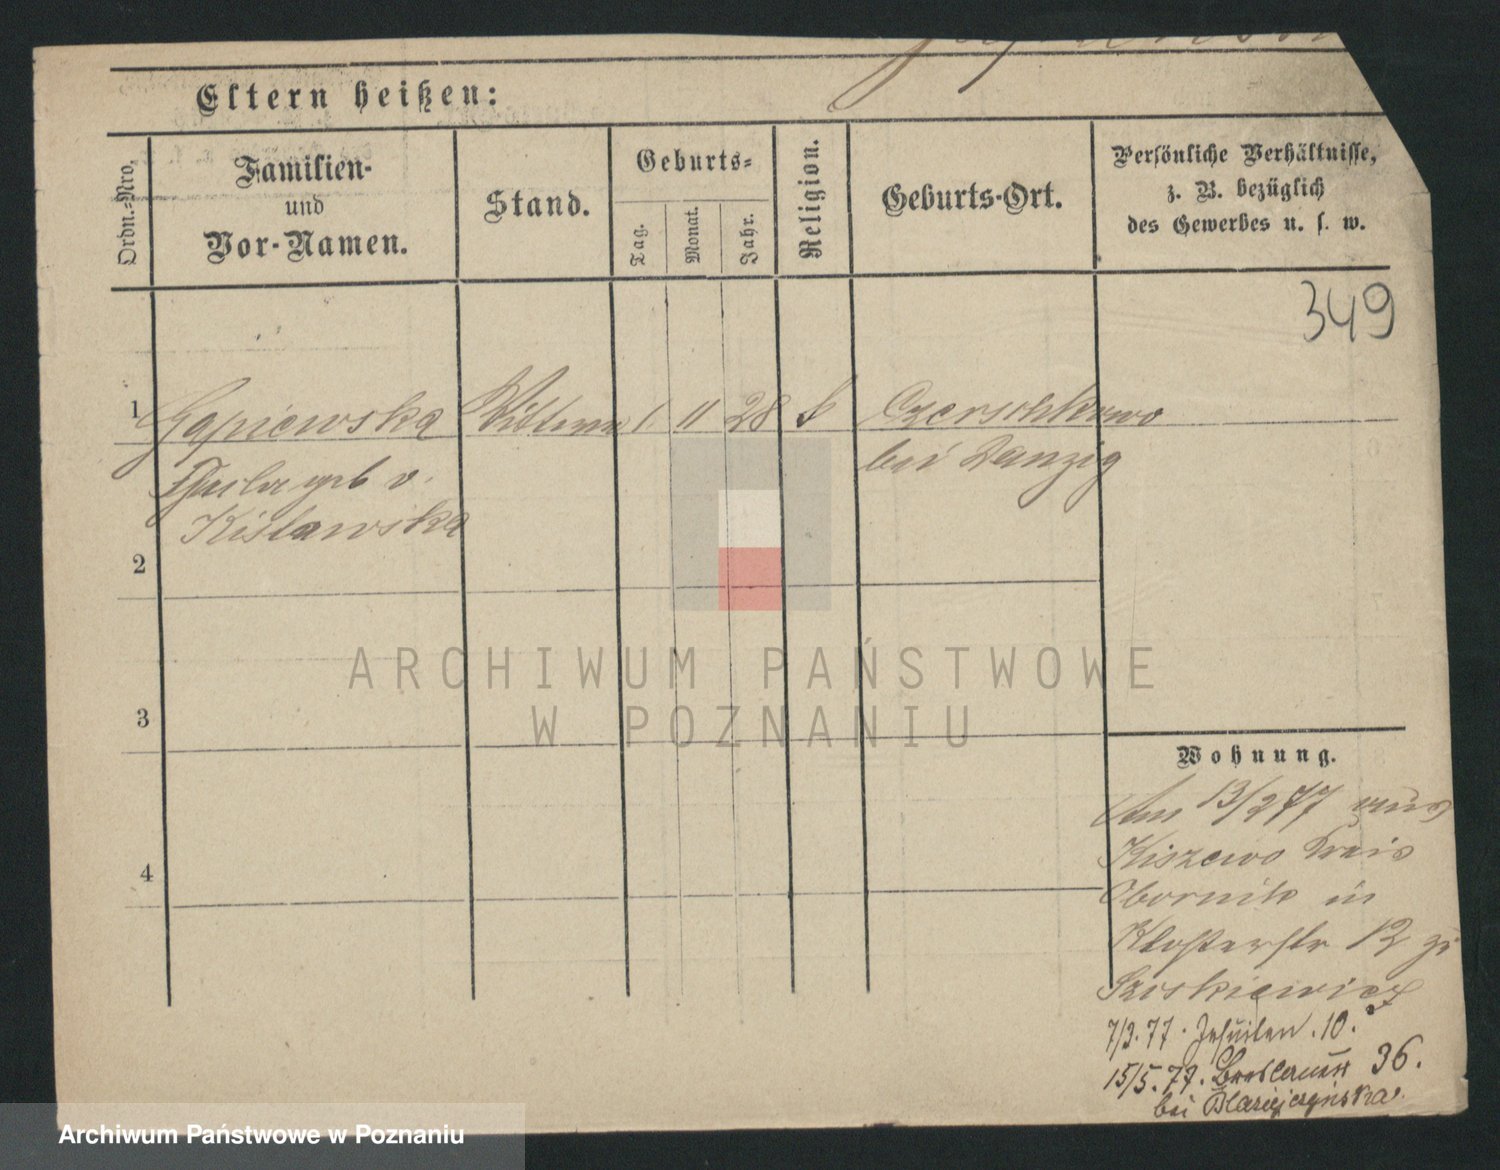 Eltern heißen:
Ordn.-Nro.
Familien-
und
Vor-Namen.
Stand.
Geburts-
Tag.
Monat.
Jahr.
Religion.
Geburts-Ort.
Persönliche Verhältnisse,
z. B. bezüglich
des Gewerbes u. s. w.
349
1 Gapiewska Wittwe 1 11 28 k Czerschkowo
geb v. bei Danzig
Kislawska
2
3
4
Wohnung.
Am 13/2 77 aus
Kiszewo Kreis
Obornik in
Klosterstr 12 zu
Szoskiewicz
7/3. 77. Jesuiten. 10.
15/5. 77. Breslauerstr 36.
bei Blazejczynska.
ARCHIWUM PAŃSTWOWE
W POZNANIU
Archiwum Państwowe w Poznaniu